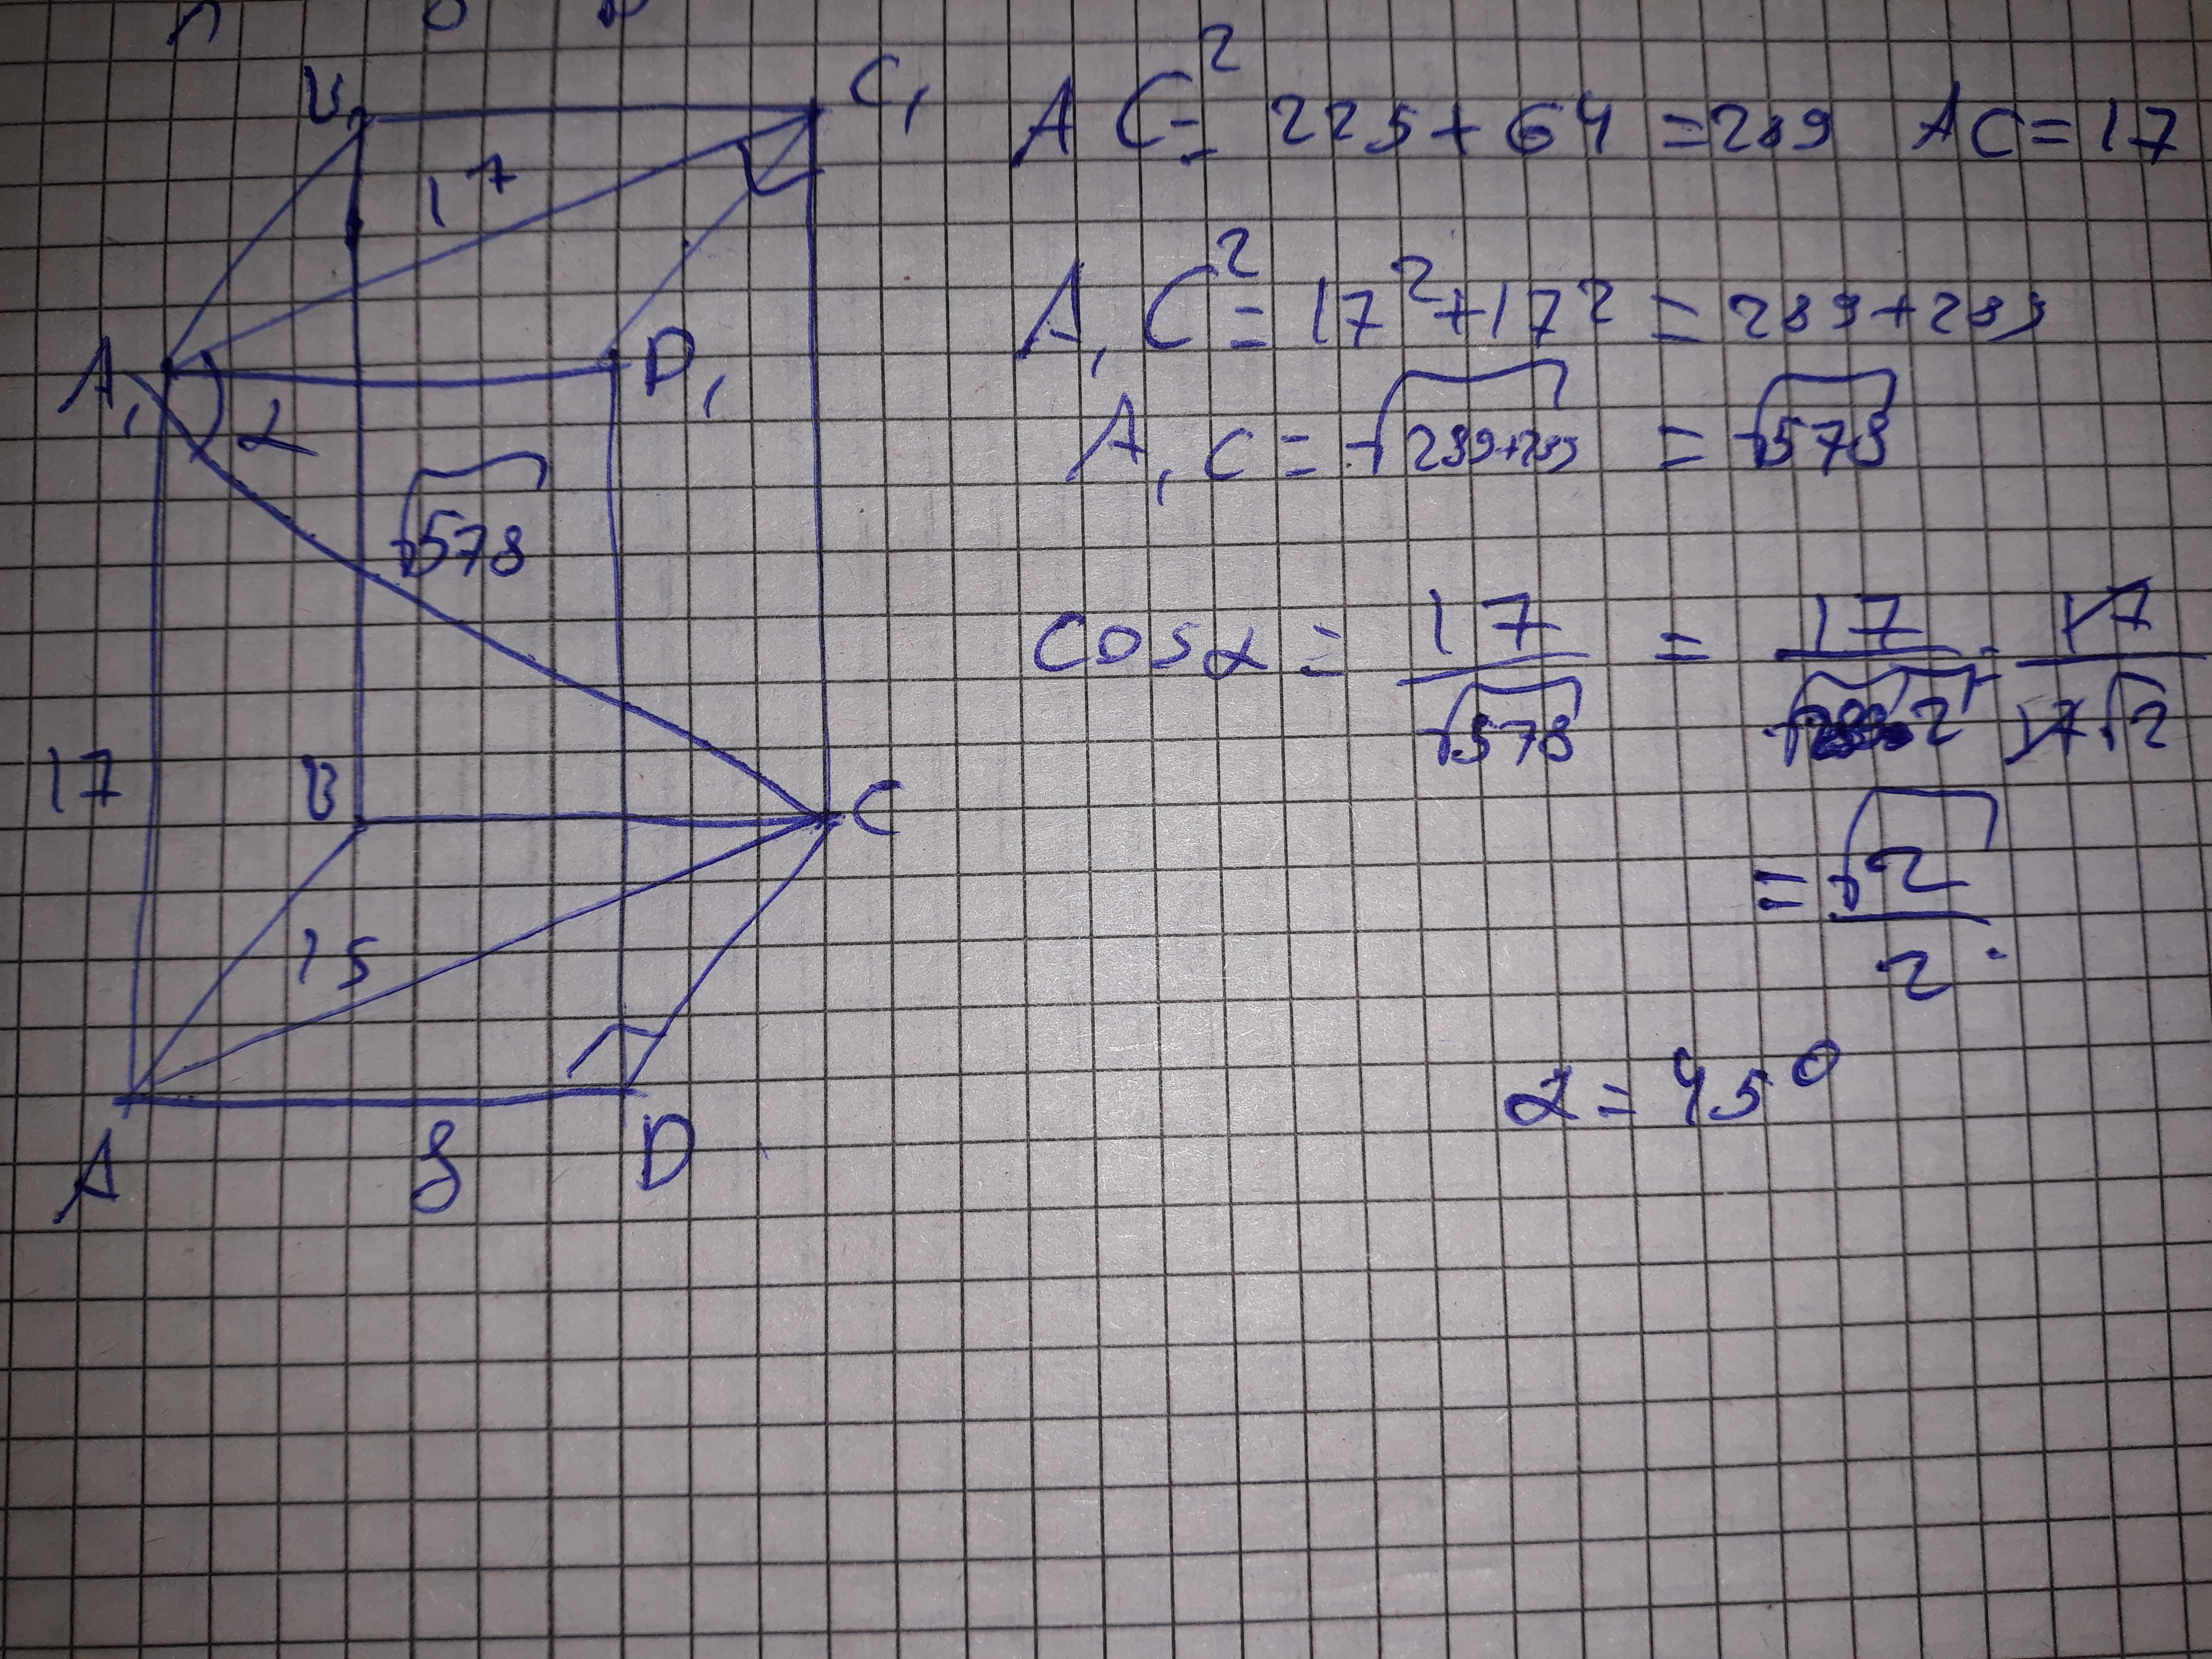 B₁ C₁
17
A₁ D₁
α
√578
17 B C
15
A 8 D
AC² = 225 + 64 = 289 AC = 17
A₁C² = 17² + 17² = 289 + 289
A₁C = √289+289 = √578
cos α = 17/√578 = 17/√289·2 = 17/17√2
= √2/2.
α = 45°